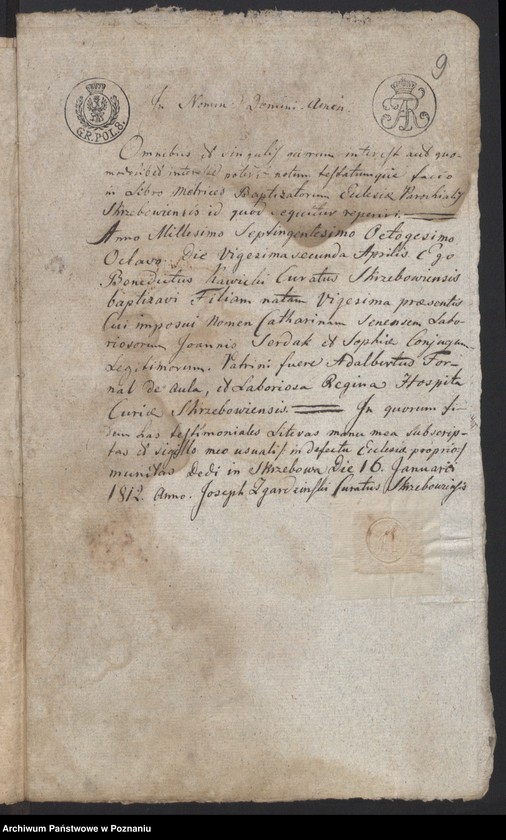 9
GR. POL. 8.
In Nomine Domini Amen.
Omnibus et singulis quorum interest aut quo-
modolibet interesse poterit notum testatumque facio
in Libro Metrices Baptizatorum Ecclesiæ Parochialis
Skrzebowiensis id quod sequitur reperiri.
Anno Millesimo Septingentesimo Octogesimo
Octavo. Die Vigesima secunda Aprilis. Ego
Benedictus Curatus Skrzebowiensis
baptizavi Filiam natam Vigesima præsentis
Cui imposui Nomen Catharinam Senensem Labo-
riosorum Joannis Serdak et Sophiæ Conjugum
Legitimorum. Patrini fuere Adalbertus For-
nal de Aula, et Laboriosa Regina Hospita
Curiæ Skrzebowiensis. In quorum fi-
dem has testimoniales Literas manu mea subscrip-
tas et sigillo meo usuali in defectu Ecclesiæ proprio
munitas Dedi in Skrzebowa Die 16. Januarii
1812. Anno. Joseph Curatus Skrzebowiensis
Archiwum Państwowe w Poznaniu